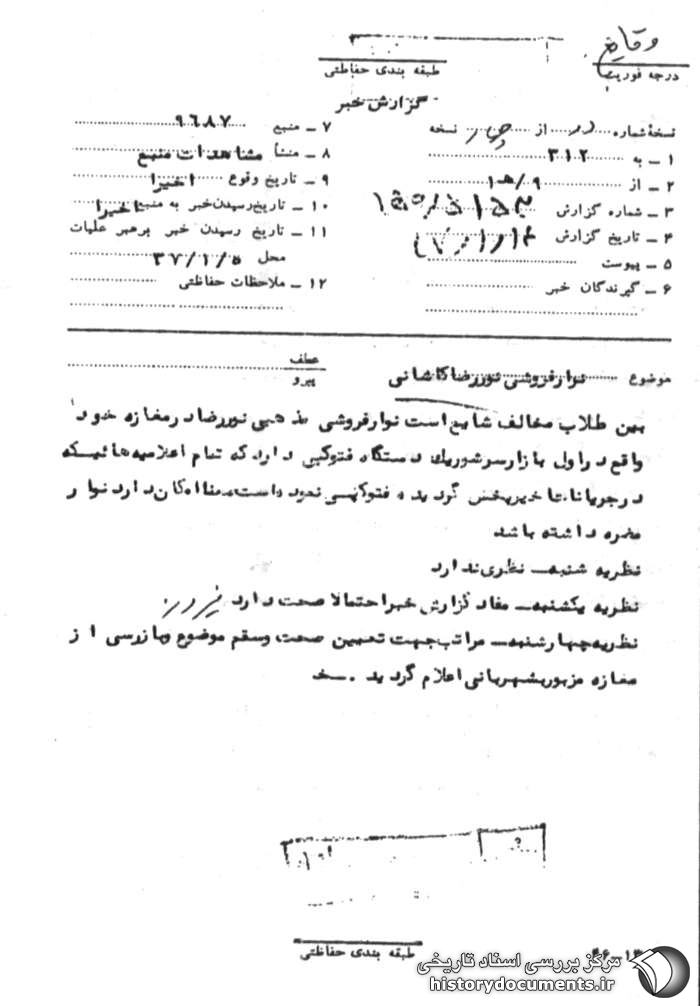 وقایع
درجه فوریت
طبقه بندی حفاظتی
گزارش خبر
نسخهٔ شماره از نسخه
۱ ـ به ۳۱۲
۲ ـ از ۹/هـ۱
۳ ـ شماره گزارش
۴ ـ تاریخ گزارش
۵ ـ پیوست
۶ ـ گیرندگان خبر
۷ ـ منبع ۹۶۸۷
۸ ـ منشأ مشاهدات منبع
۹ ـ تاریخ وقوع اخیرا
۱۰ ـ تاریخ رسیدن خبر به منبع اخیرا
۱۱ ـ تاریخ رسیدن خبر برهبر عملیات
محل ۳۷/۱/۵
۱۲ ـ ملاحظات حفاظتی
موضوع نوارفروشی نوررضا کاشانی
عطف
پیرو
بین طلاب مخالف شایع است نوارفروشی مذهبی نوررضا در مغازه خود
واقع در اول بازار سرشور یک دستگاه فتوکپی دارد که تمام اعلامیه هائیکه
در جریانات اخیر پخش گردیده فتوکپی نموده است ضمنا امکان دارد نوار
مضره داشته باشد
نظریه شنبه ـ نظری ندارد
نظریه یکشنبه ـ مفاد گزارش خبر احتمالا صحت دارد
نظریه چهارشنبه ـ مراتب جهت تعیین صحت و سقم موضوع و بازرسی از
مغازه مزبور بشهربانی اعلام گردید .
طبقه بندی حفاظتی
مرکز بررسی اسناد تاریخی
historydocuments.ir